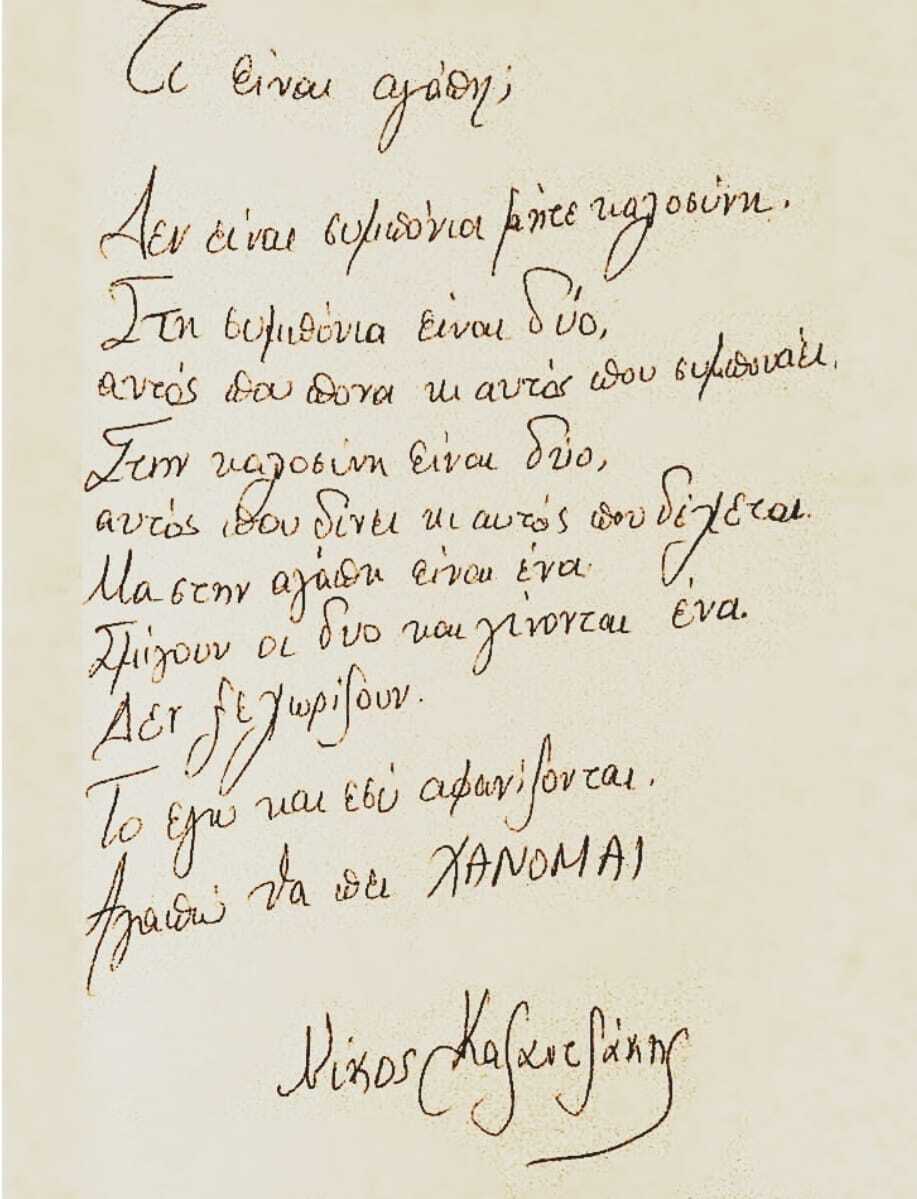 Τι είναι αγάπη;
Δεν είναι συμπόνια μήτε καλοσύνη.
Στη συμπόνια είναι δύο,
αυτός που πονά κι αυτός που συμπονάει.
Στην καλοσύνη είναι δύο,
αυτός που δίνει κι αυτός που δέχεται.
Μα στην αγάπη είναι ένα.
Σμίγουν οι δυο και γίνονται ένα.
Δεν ξεχωρίζουν.
Το εγώ και εσύ αφανίζονται.
Αγαπώ θα πει ΧΑΝΟΜΑΙ
Νίκος Καζαντζάκης